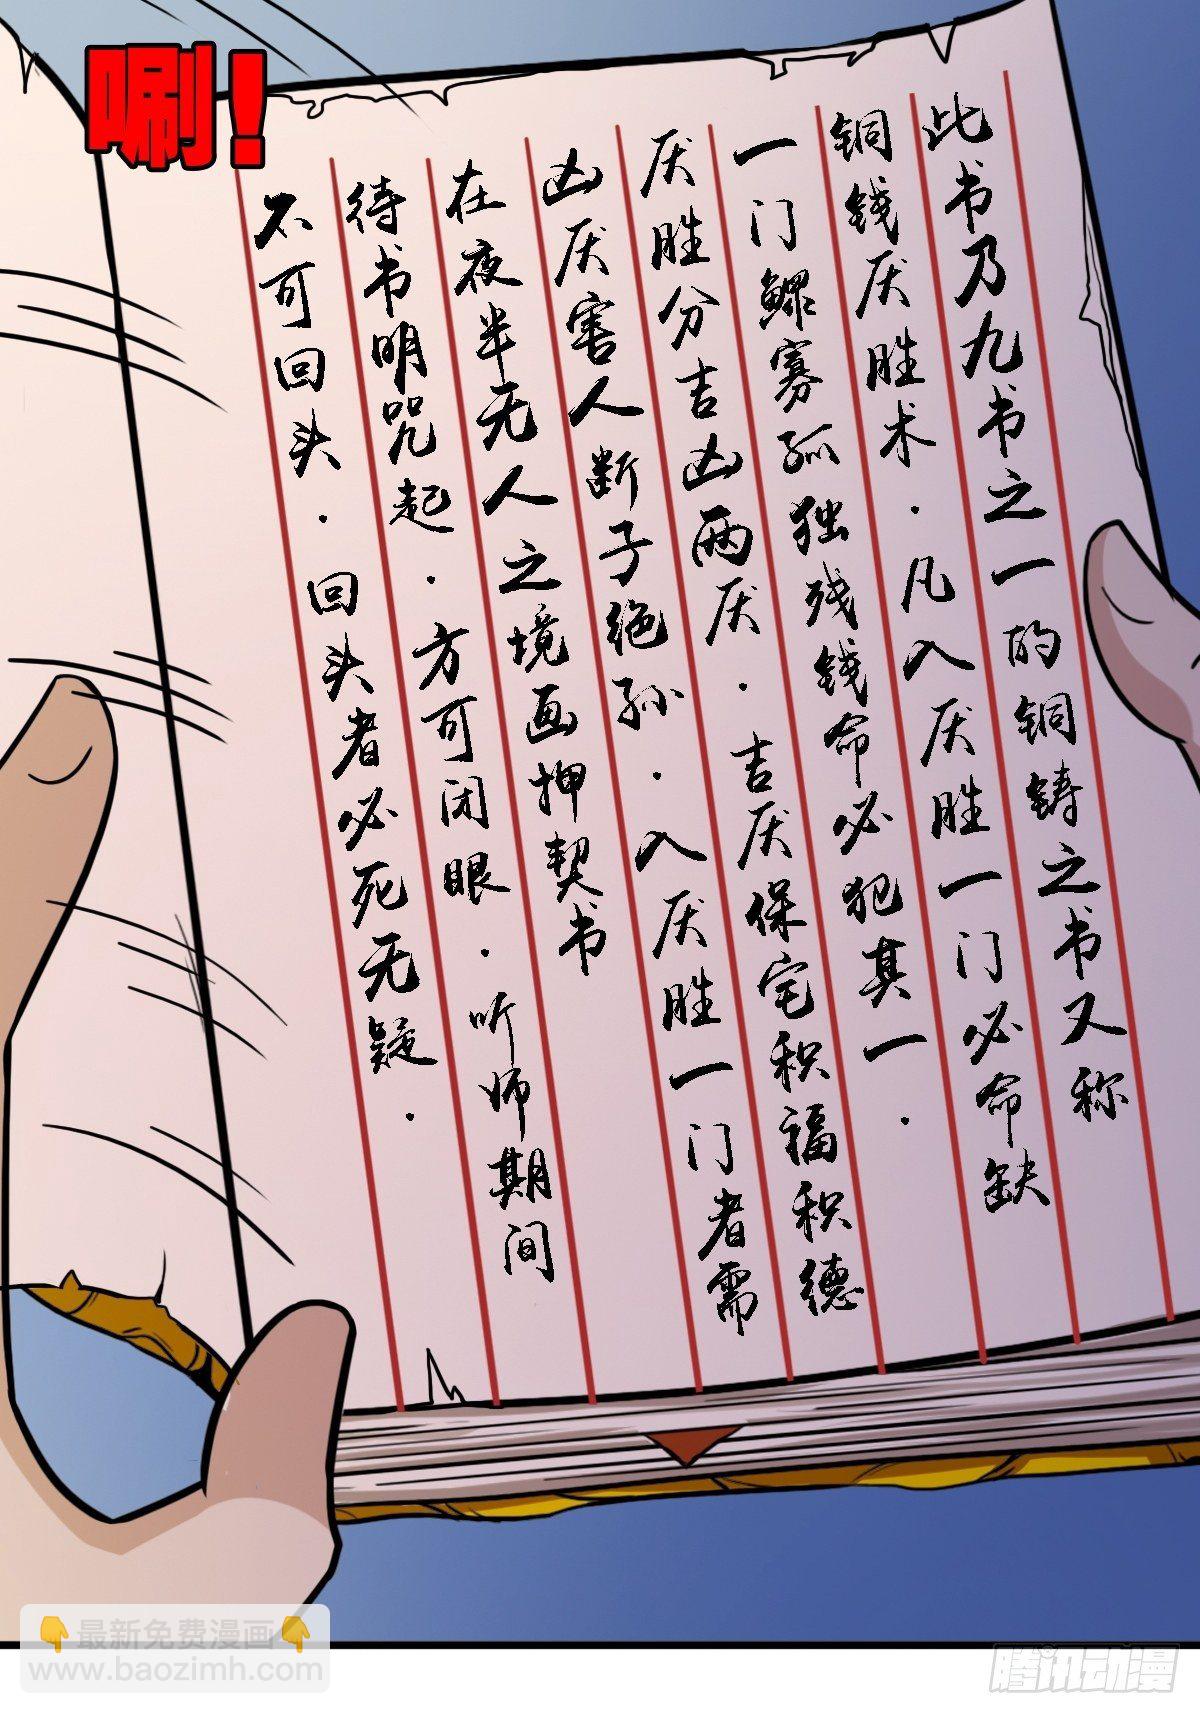 唰！
此书乃九书之一的铜铸之书又称
铜钱厌胜术．凡入厌胜一门必命缺
一门鳏寡孤独残钱命必犯其一．
厌胜分吉凶两厌．吉厌保宅积福积德
凶厌害人断子绝孙．入厌胜一门者需
在夜半无人之境画押契书
待书明咒起．方可闭眼．听师期间
不可回头．回头者必死无疑．
👇最新免费漫画👇
www.baozimh.com
腾讯动漫